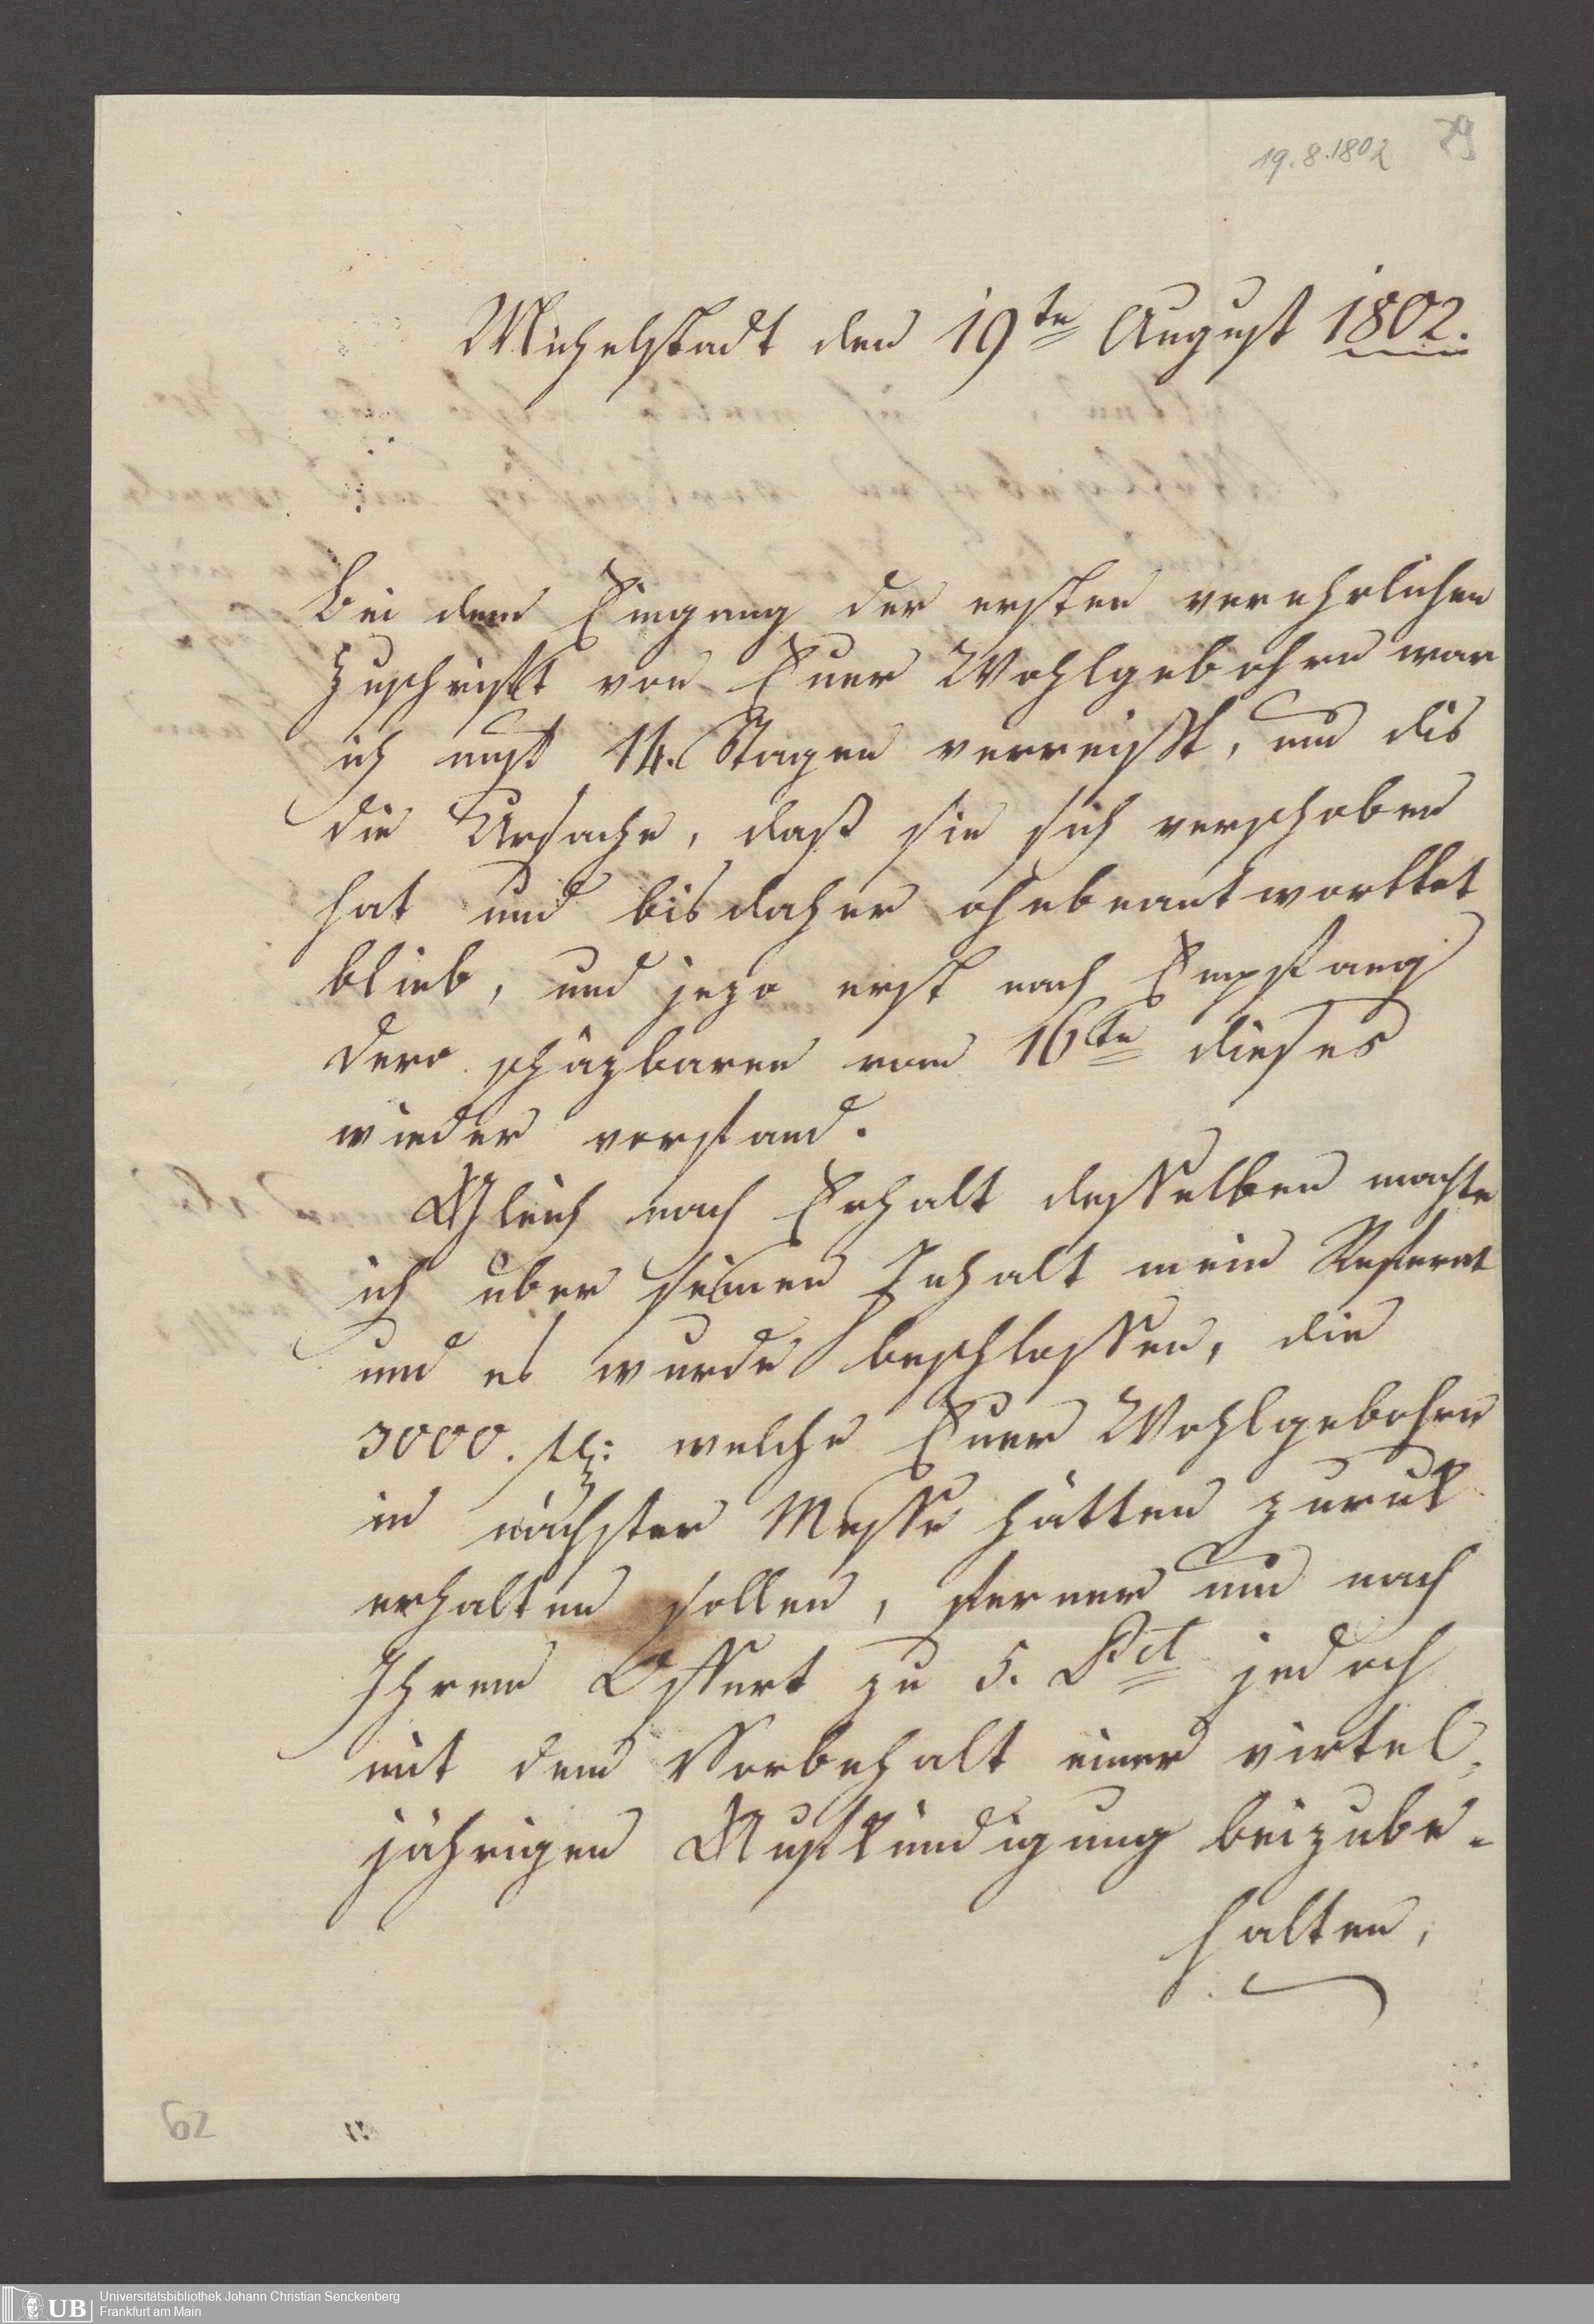 19.8.1802
79
Michelstadt den 19te August 1802.
Bei dem Eingang der ersten verehrlichen
Zuschrifft von Euer Wohlgebohrn war
ich auf 14. Tagen verreißt, und dis
die Ursache, daß sie sich verschoben
hat und bisdaher ohnbeantworttet
blieb, und jezo erst nach Empfang
dero schäzbaren vom 16te dieses
wieder vorfand.
Gleich nach Erhalt desselben machte
ich über seinen Inhalt mein Referat
und es wurde beschlossen, die
3000. fl: welche Euer Wohlgebohrn
in nächster Messe hätten zurük
erhalten sollen, ferner um nach
Ihrem Offert zu 5. PCt jedoch
mit dem Vorbehalt einer virtel
jährigen Aufkündigung beizube-
halten,
62
UB
Universitätsbibliothek Johann Christian Senckenberg
Frankfurt am Main